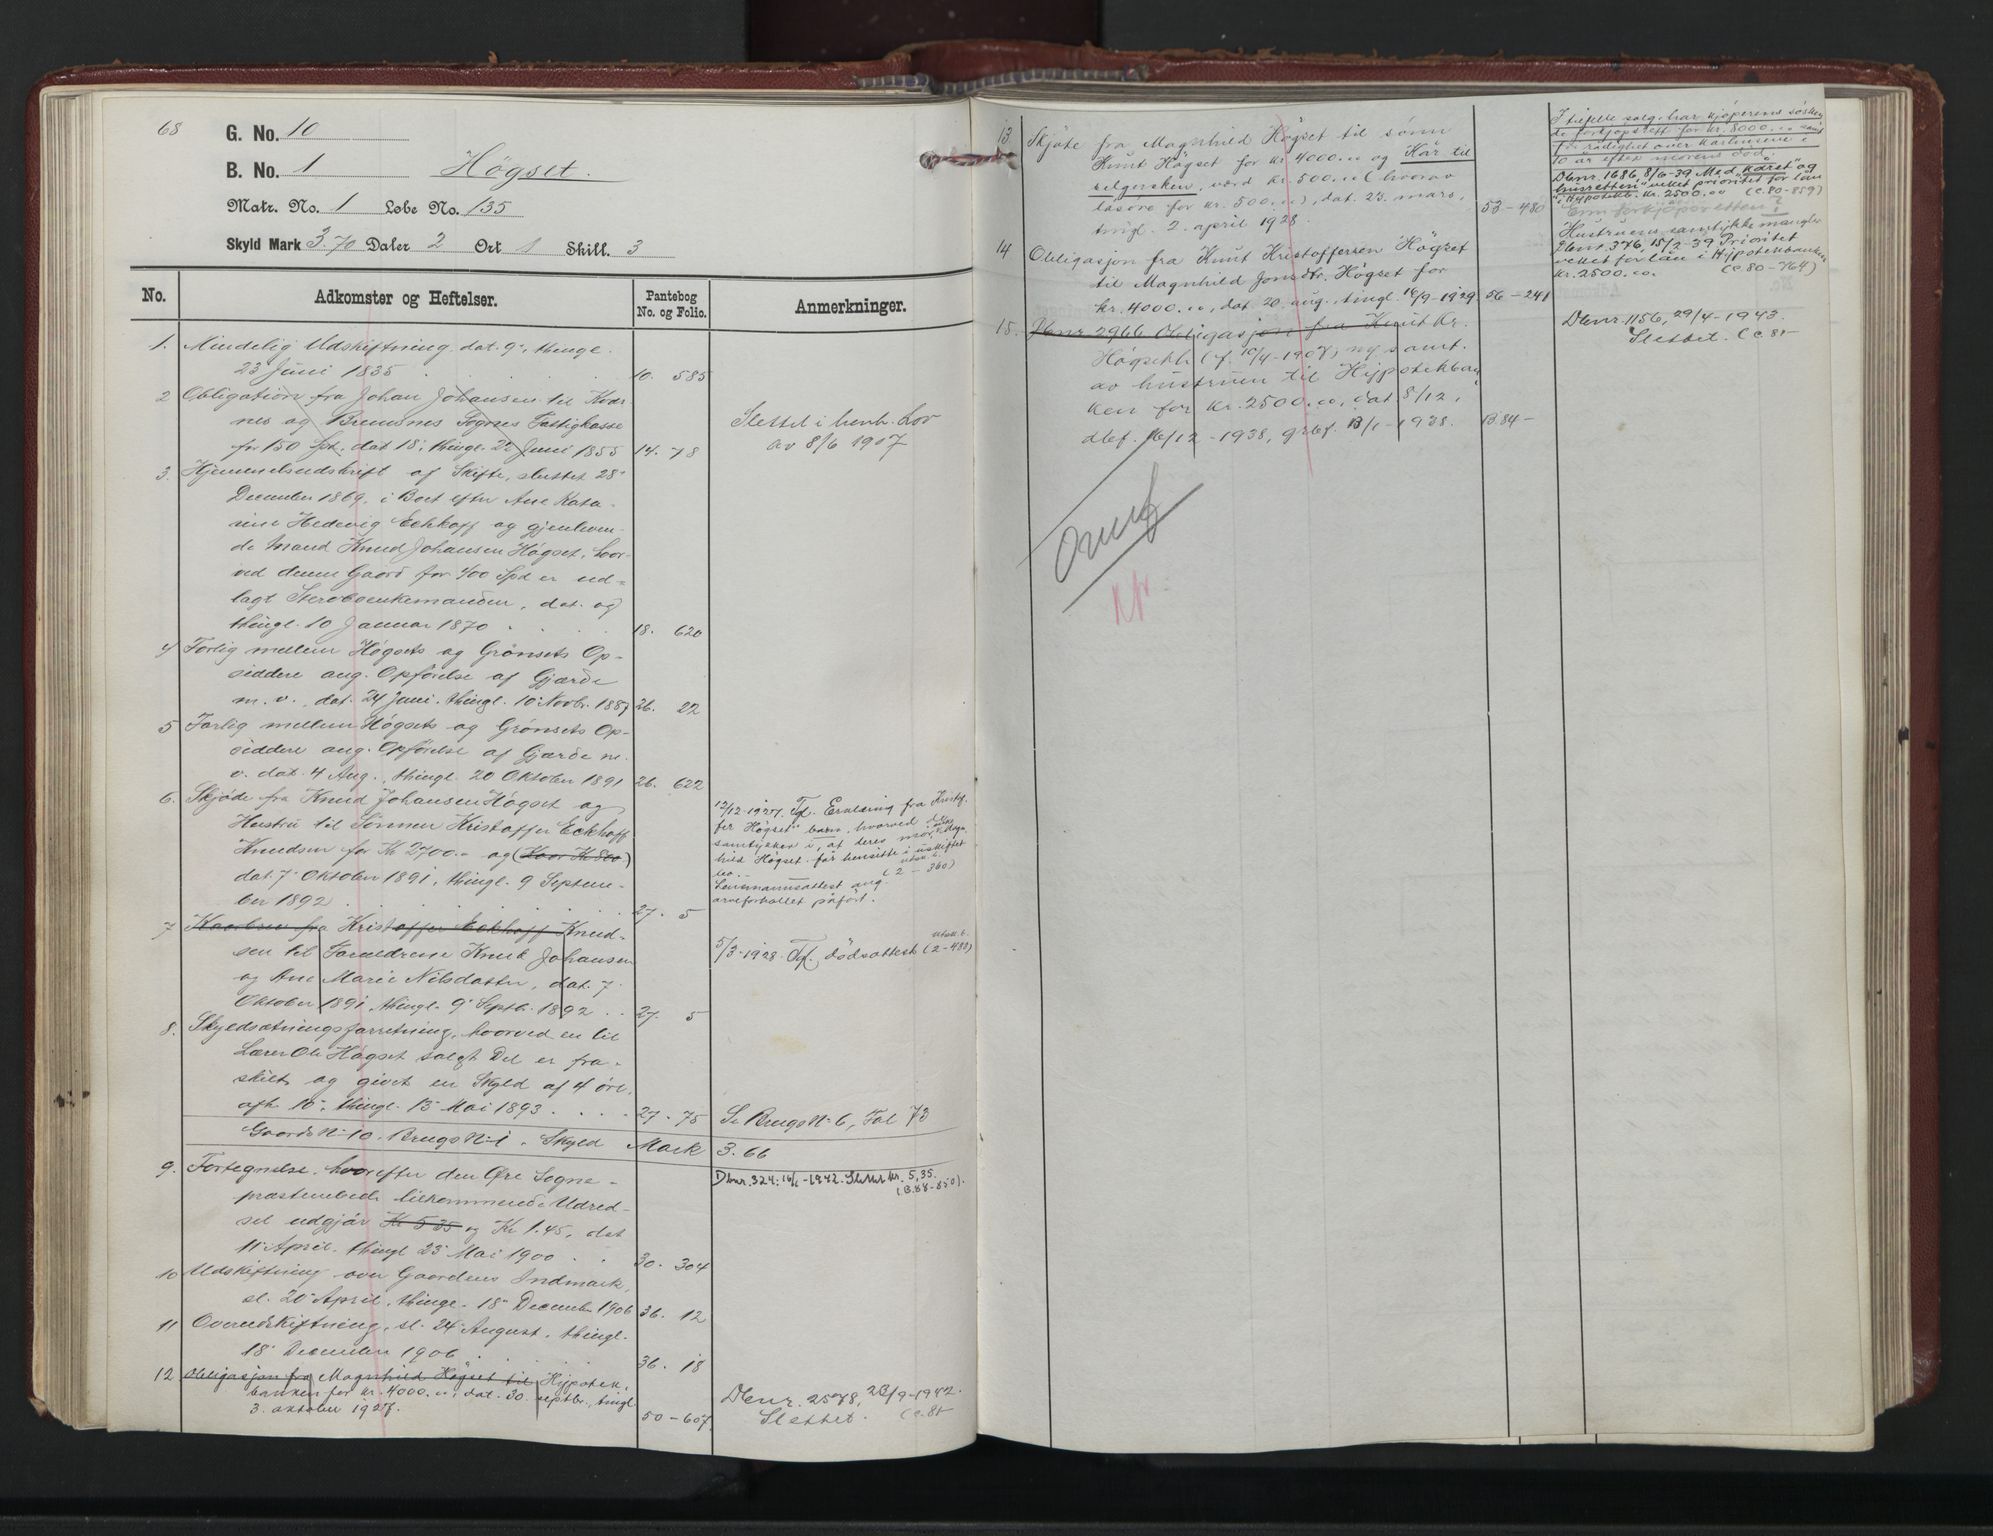 68
G. No. 10
B. No. 1 Högset.
Matr. No. 1 Løbe No. 135
Skyld Mark 3.70 Daler 2 Ort 1 Skill. 3
No. Adkomster og Heftelser. Pantebog No. og Folio. Anmerkninger.
1. Mindelig Udskiftning, dat. 9., thingl.
23 Juni 1835 10. 585
2 Obligation fra Johan Johansen til Kvær-
nes og Bremsnes Sognes Fattigkasse
for 150 Spd. dat 18, thingl. 22 Juni 1855 14. 78
Slettet i henh. Lov
av 8/6 1907
3. Hjemmelsudskrift af Skifte, sluttet 28
December 1869, i Boet efter Ane Kata-
rine Hedevig Eckhoff og gjenleven-
de Mand Knud Johansen Högset, hvor-
ved denne Gaard for 400 Spd er ud-
lagt Stervboenkemanden, dat. og
thingl. 10 Januar 1870 18. 620
4 Forlig mellem Högsets og Grönsets Op-
siddere ang. Opförelse af Gjærde
m. v., dat. 24 Juni, thingl. 10 Novbr. 1887 26. 22
5 Forlig mellem Högsets og Grönsets Op-
siddere ang. Opförelse af Gjærde m.
v. dat. 4 Aug., thingl. 20 Oktober 1891 26. 622
6. Skjøde fra Knud Johansen Högset og
Hustru til Sönnen Kristoffer Eckhoff
Knudsen for Kr 2700.- og (Kaar Kr 800)
dat. 7 Oktober 1891, thingl. 9 Septem-
ber 1892 27. 5
12/12-1927. Tgl. Erklæring fra Kristof-
fer Högset's barn, hvorved de
samtykker i, at deres mor, enke Magn-
hild Högset får hensitte i uskiftet
bo. - (utsk. b. 2-360)
Lensmannsattest ang.
arveforholdet påført.
7 Kaarbrev fra Kristoffer Eckhoff Knud-
sen til Forældrene Knud Johansen
og Ane Marie Nilsdatter, dat. 7
Oktober 1891, thingl. 9 Septbr. 1892 27. 5
5/3-1928. Tgl. dödsattest (utsk. b. 2-480)
8. Skyldsætningsforretning, hvorved en til
Lærer Ole Högset solgt Del er fra-
skilt og givet en Skyld af 4 öre,
afh 10., thingl. 13 Mai 1893 27. 75 Se Brugs No 6, Fol 73
Gaards No 10. Brugs No 1. Skyld Mark 3.66
9. Fortegnelse, hvorefter den Öre Sogne-
præstembede tilkommende Udred-
sel udgjör Kr 5.35 og Kr 1.45, dat
11 April, thingl 23 Mai 1900 30. 304
Dbnr. 324: 16/1-1942. Slettet kr. 5,35.
(B. 88-850).
10 Udskiftning over Gaardens Indmark,
sl. 20 April, thingl. 18 December 1906 36. 12
11 Overudskiftning, sl. 24 August, thingl.
18 December 1906 36. 18
12 Obligasjon fra Magnhild Högset til Hypotek-
banken for kr. 4000.00, dat. 30. septbr., tingl.
3. oktober 1927. 50-607.
Dbnr. 2578, 29/9-1942.
Slettet. (C. 81-
13 Skjøte fra Magnhild Högset til sønn
Knut Högset for kr. 4000.00 og Kår til
selgersken, værd kr. 500.00 (hvorav
løsøre for kr. 500.00), dat. 23. mars,
tingl. 2. april 1928. 53-480
I tilfelle salg har kjøperens søsken
de forkjøpsrett for kr. 8000.00 samt
10 år efter morens död.
Dbnr. 1686, 8/6-39. Med "kåret" og
"husretten" veket prioritet for lån
i Hypotekb. kr. 2500.00 (C. 80-859)
Enn forkjøpsretten?
Hustruens samtykke mangler
Dbnr. 376, 15/2-39 Prioritet
veket for lån i Hypotekbanken
kr. 2500.00. (C. 80-764)
14 Obligasjon fra Knut Kristoffersen Högset
til Magnhild Jonsdtr. Högset for
kr. 4000.00, dat. 20. aug., tingl. 16/9-1929. 56-241
15. Dbnr. 2966 Obligasjon fra Knut Kr.
Högset (f. 10/4-1907) m/ samt.
av hustruen til Hypotekban
ken for kr. 2500.00, dat 8/12,
dbf. 16/12-1938, grbf. 13/1-1938. B. 84-
Dbnr. 1156, 29/4-1943.
Slettet. (C. 81-